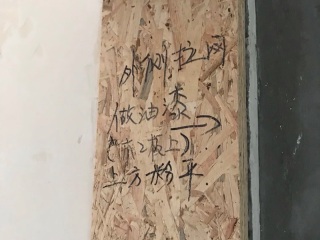 外侧拉网
做油漆
(木工板上)
上方粉平